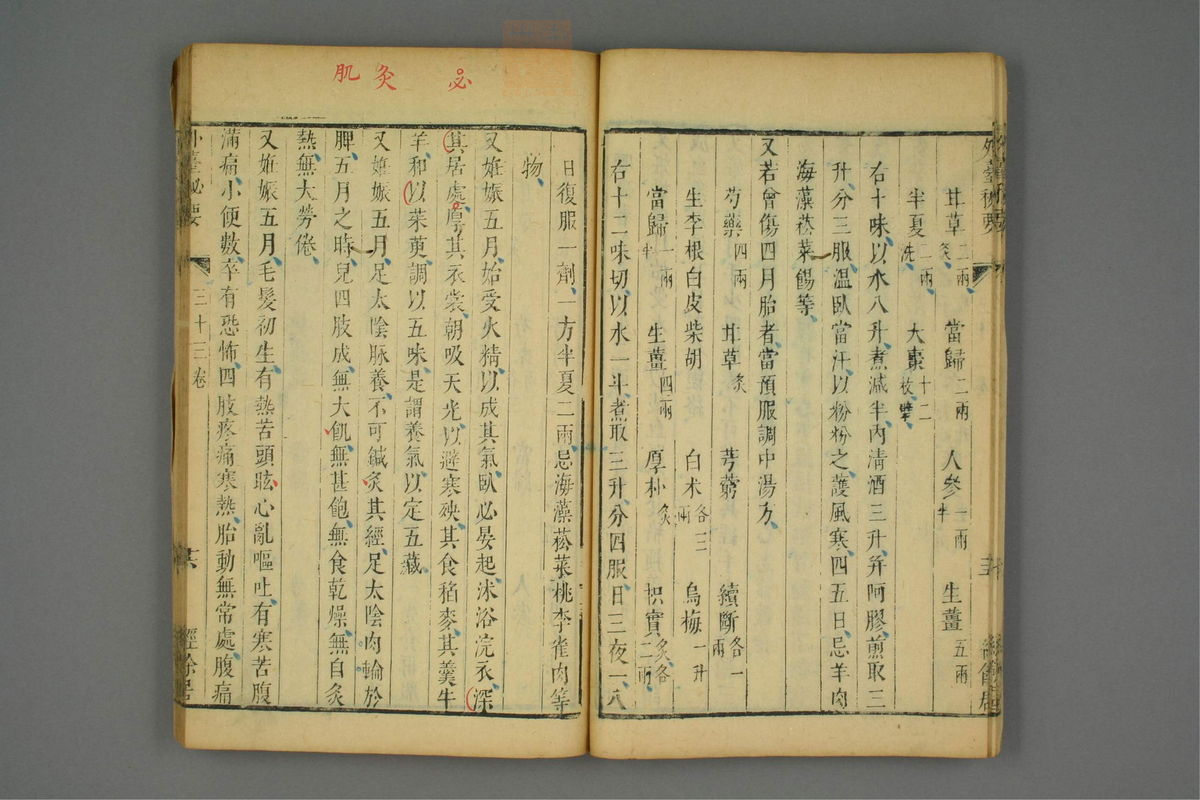 甘草二兩炙 當歸二兩 人參一兩半 生薑五兩
半夏二兩洗 大棗十二枚擘
右十味以水八升煮減半內清酒三升并阿膠煎取三
升分三服溫臥當汗以粉粉之護風寒四五日忌羊肉
海藻菘菜餳等
又若曾傷四月胎者當預服調中湯方
芍藥四兩 甘草炙 芎藭 續斷各一兩
生李根白皮 柴胡 白朮各三兩 烏梅一升
當歸一兩半 生薑四兩 厚朴炙 枳實炙各二兩
右十二味切以水一斗煮取三升分四服日三夜一八
日復服一劑一方半夏二兩忌海藻菘菜桃李雀肉等
物
又姙娠五月始受火精以成其氣臥必晏起沐浴浣衣深
其居處厚其衣裳朝吸天光以避寒殃其食稻麥其羹牛
羊和以茱萸調以五味是謂養氣以定五藏
又姙娠五月足太陰脉養不可鍼灸其經足太陰內輪於
脾五月之時兒四肢成無大飢無甚飽無食乾燥無自灸
熱無大勞倦
又姙娠五月毛髮初生有熱苦頭眩心亂嘔吐有寒苦腹
滿痛小便數卒有恐怖四肢疼痛寒熱胎動無常處腹痛
外臺秘要 三十三卷 經餘居
必 灸 肌